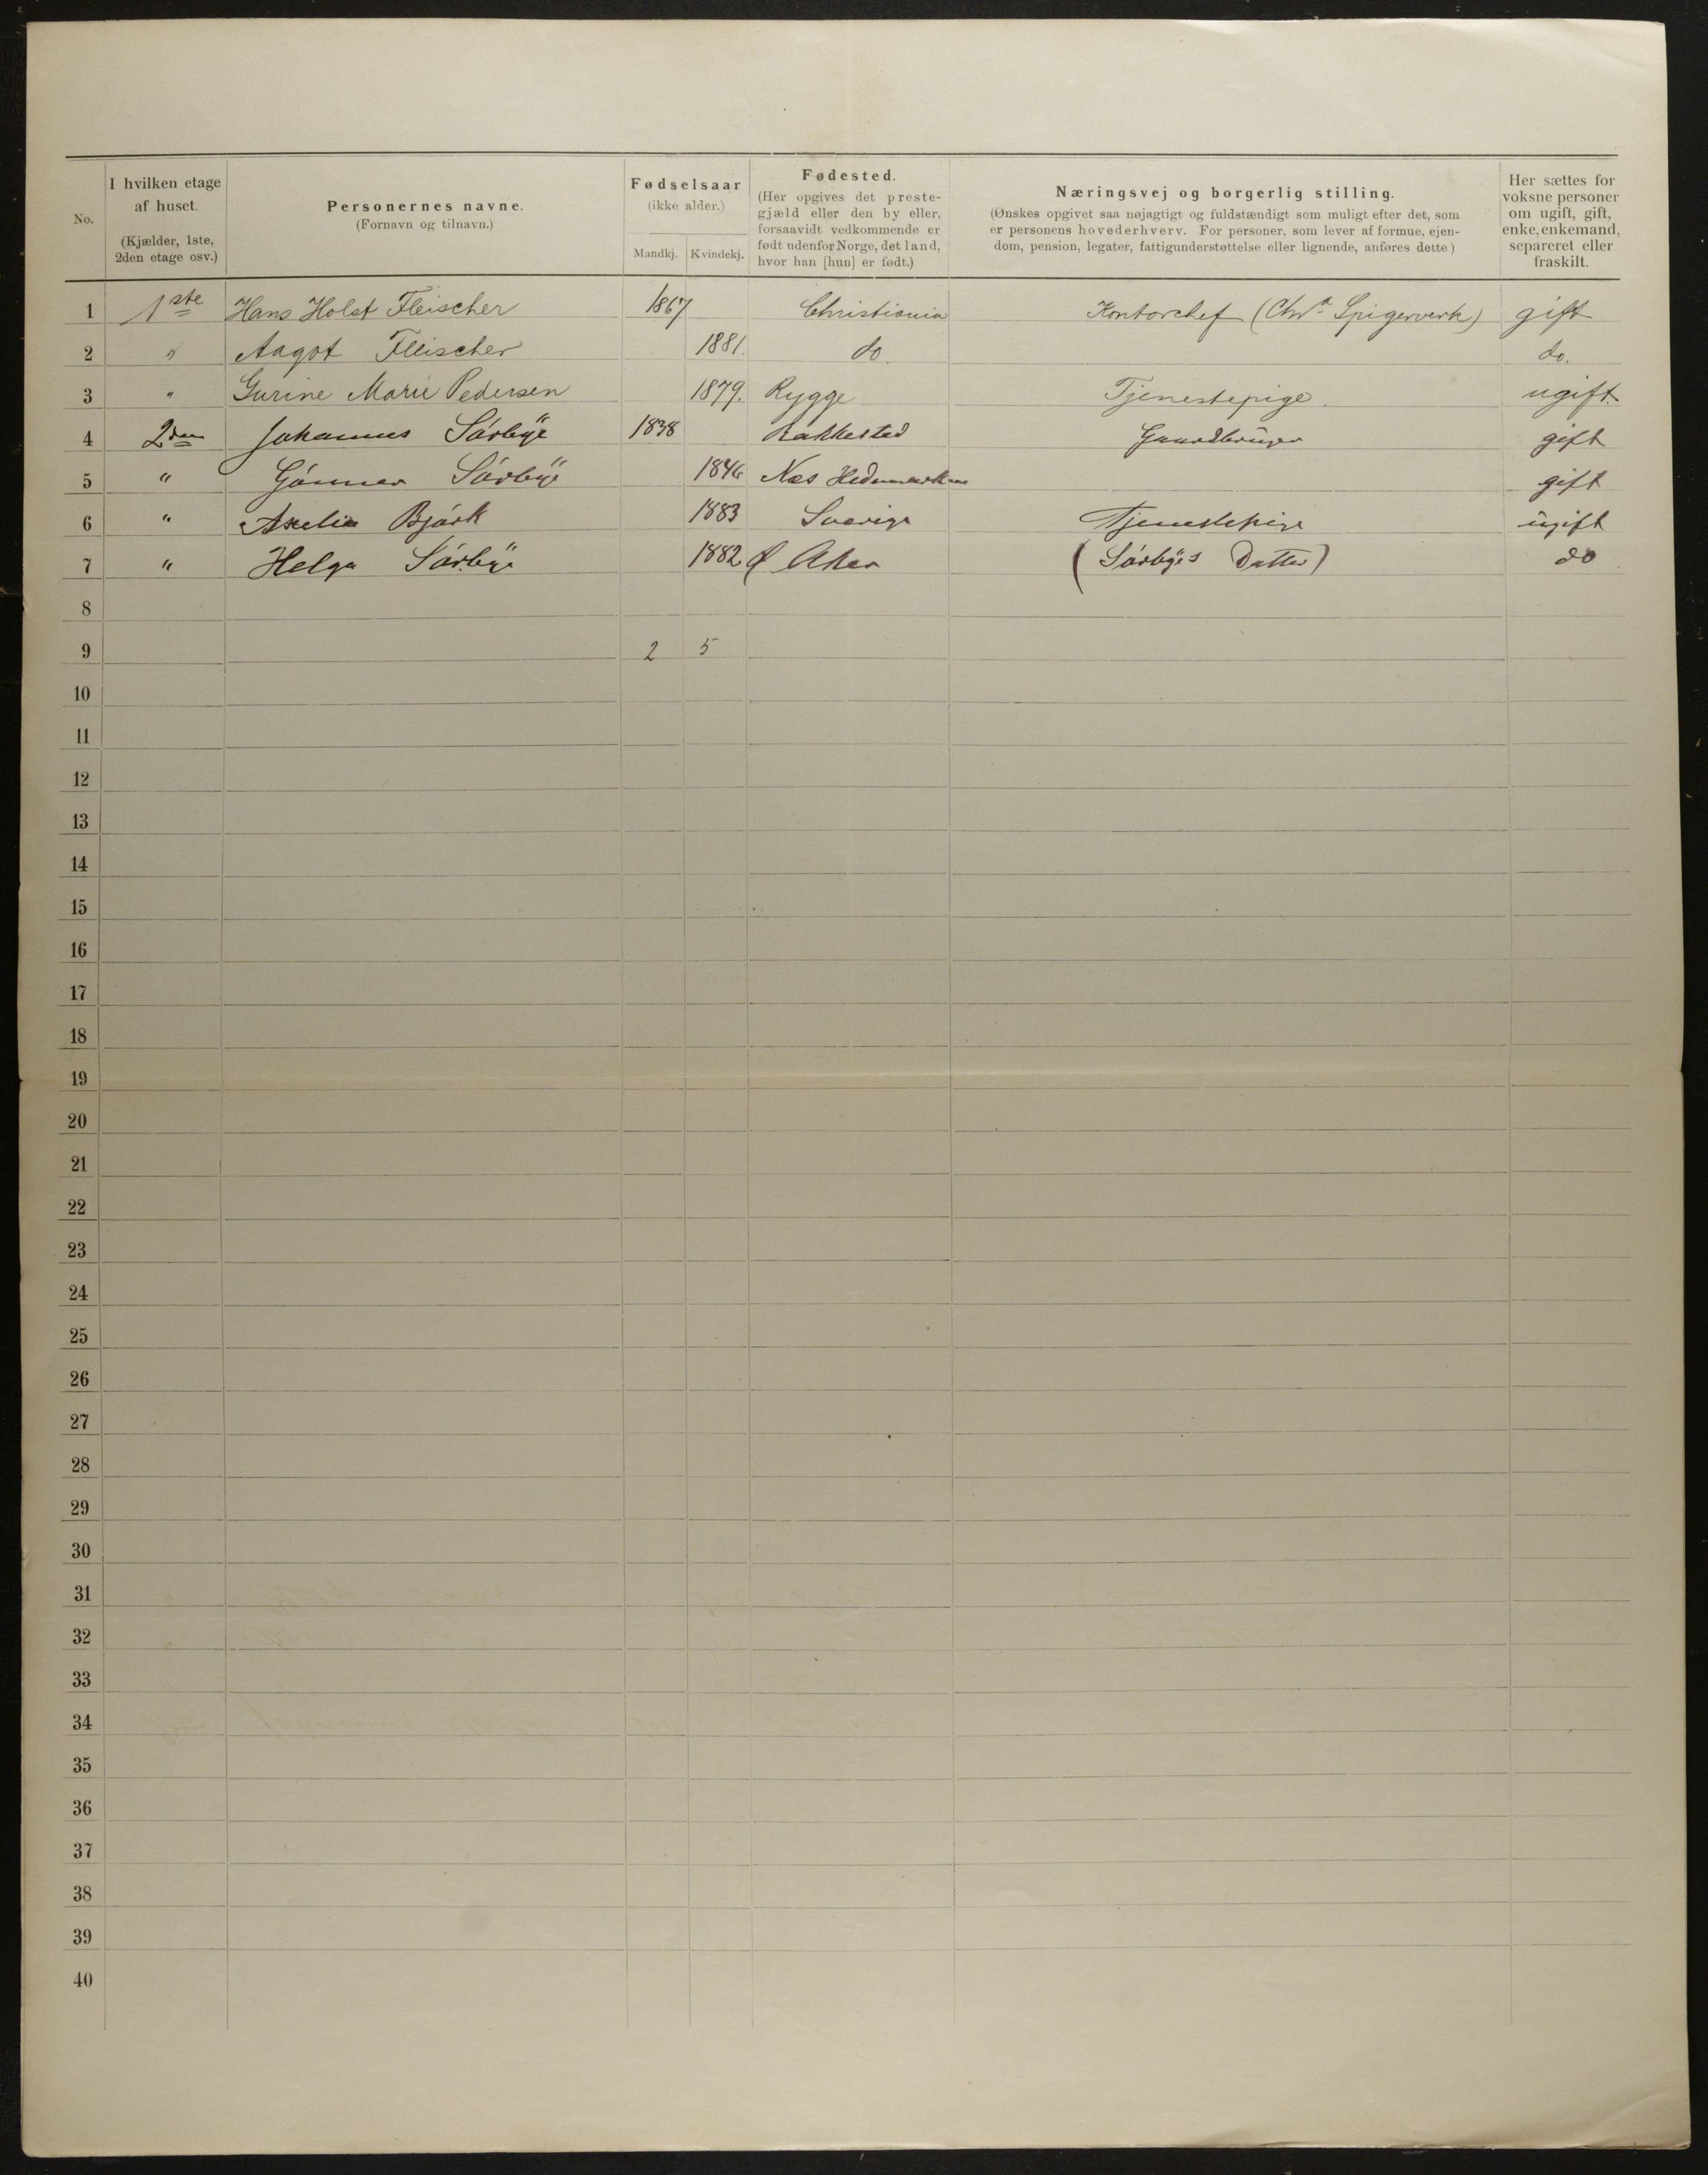 No. | I hvilken etage af huset. (Kjælder, 1ste, 2den etage osv.) | Personernes navne. (Fornavn og tilnavn.) | Fødselsaar (ikke alder.) Mandkj. | Kvindekj. | Fødested. (Her opgives det prestegjæld eller den by eller, forsaavidt vedkommende er født udenfor Norge, det land, hvor han [hun] er født.) | Næringsvej og borgerlig stilling. (Ønskes opgivet saa nøjagtigt og fuldstændigt som muligt efter det, som er personens hovederhverv. For personer, som lever af formue, ejendom, pension, legater, fattigunderstøttelse eller lignende, anføres dette) | Her sættes for voksne personer om ugift, gift, enke, enkemand, separeret eller fraskilt.
1 1ste Hans Holst Fleischer 1867 Christiania Kontorchef (Chr.a Spigerverk) gift
2 " Aagot Fleischer 1881. do. do.
3 " Gurine Marie Pedersen 1879. Rygge Tjenestepige. ugift.
4 2den Johannes Sörbÿe 1838 Rakkestad Gaardbrüger gift
5 " Gönner Sörbÿe 1846 Næs Hedemarken gift
6 " Axelia Björk 1883 Sverige Tjenestepige ügift
7 " Helga Sörbÿe 1882 Aker (Sörbÿes Datter) do
8
9 2 5
10
11
12
13
14
15
16
17
18
19
20
21
22
23
24
25
26
27
28
29
30
31
32
33
34
35
36
37
38
39
40